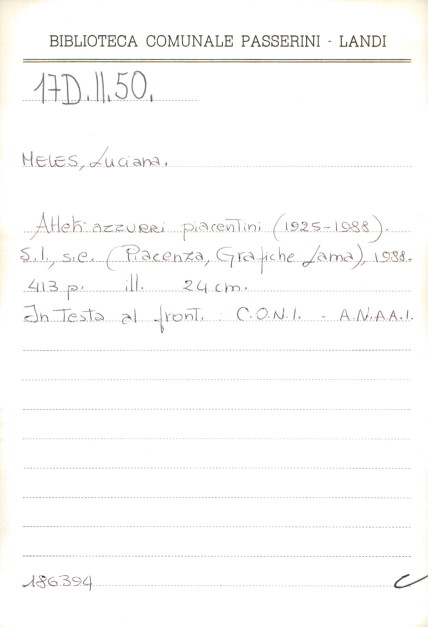 BIBLIOTECA COMUNALE PASSERINI - LANDI
17D.II.50.
MELES, Luciana.
Atleti azzurri piacentini (1925-1988).
S.l., s.e. (Piacenza, Grafiche Lama), 1988.
413 p. ill. 24 cm.
In testa al front. : C.O.N.I. - A.N.A.A.I.
186394